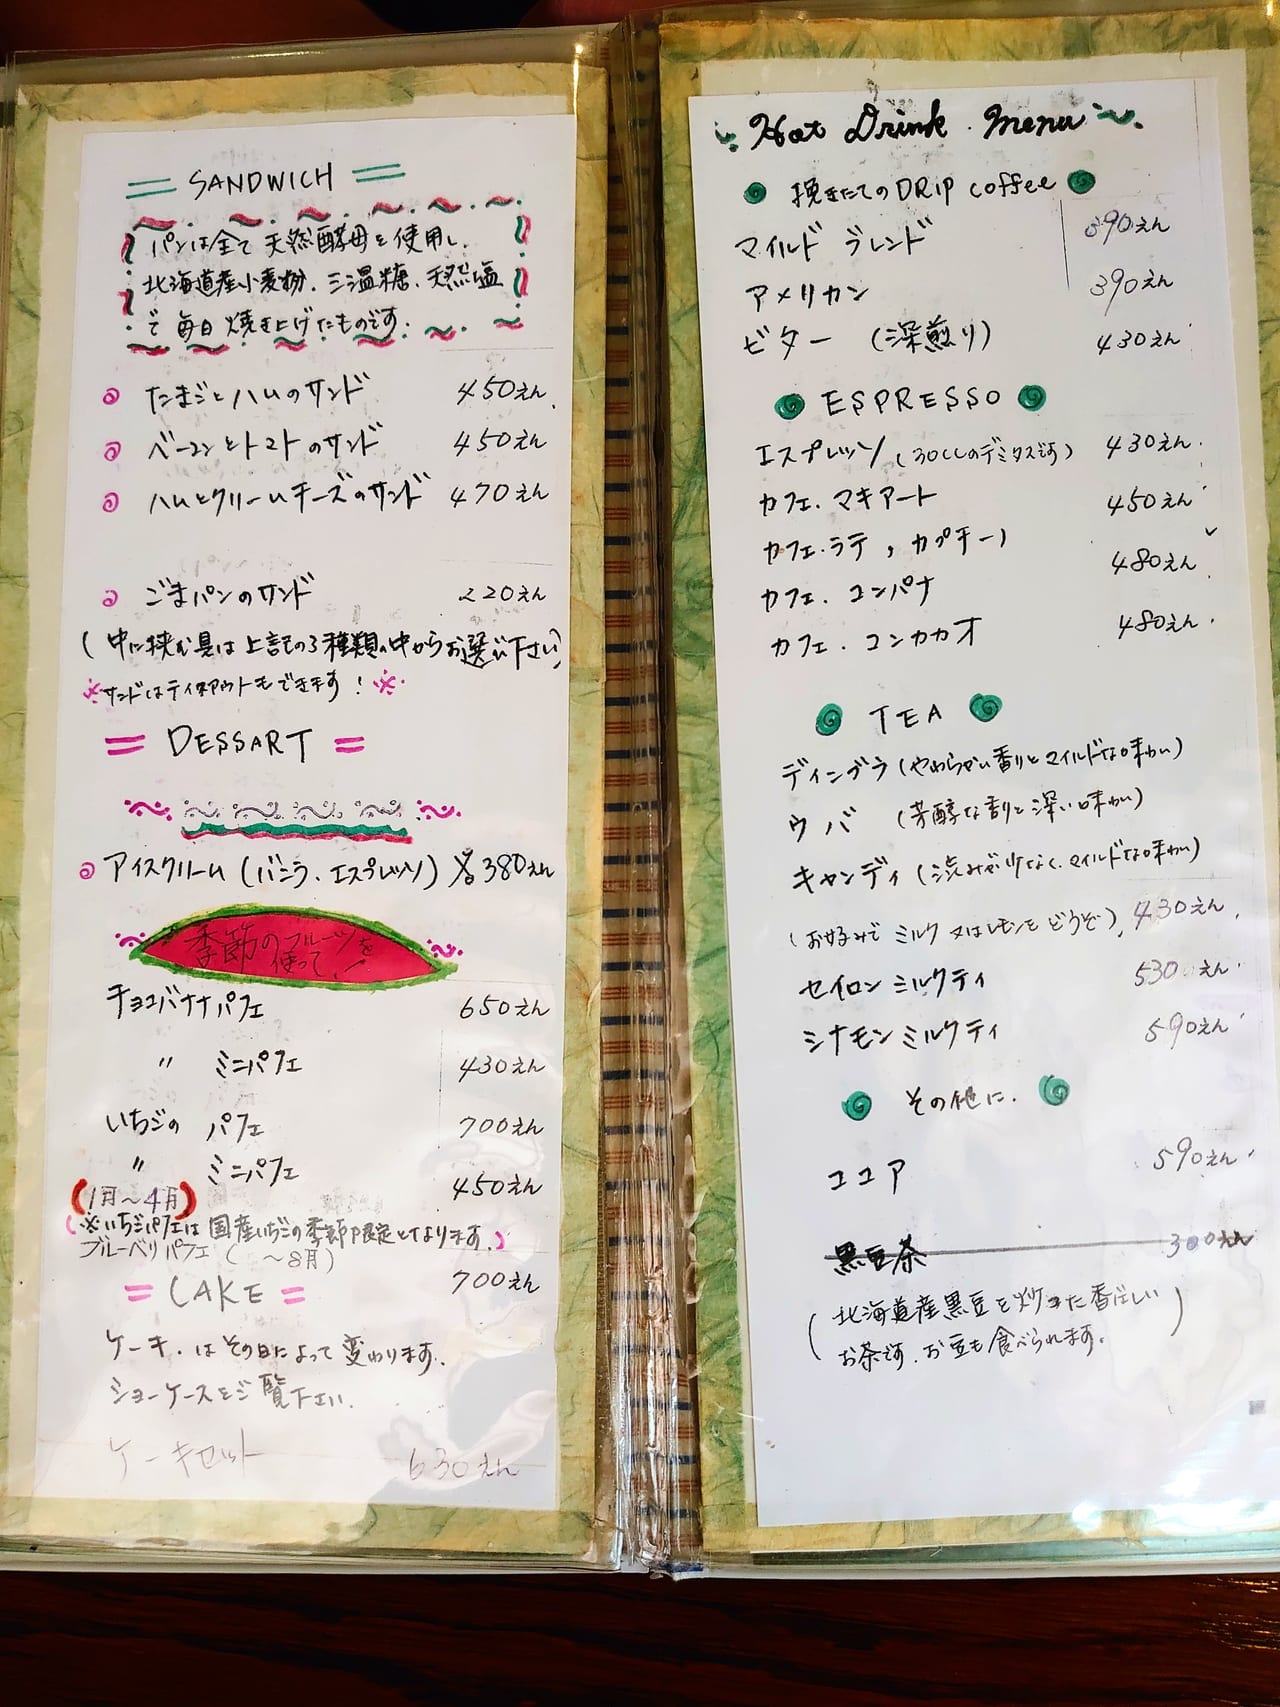 SANDWICH
パンは全て天然酵母を使用し、
北海道産小麦粉、三温糖、天然塩
で毎日焼き上げたものです。
たまごとハムのサンド 450えん
ベーコンとトマトのサンド 450えん
ハムとクリームチーズのサンド 470えん
ごまパンのサンド 220えん
(中に挟む具は上記の3種類の中からお選び下さい)
※サンドはテイクアウトもできます!※
DESSART
アイスクリーム(バニラ、エスプレッソ) 各380えん
季節のフルーツを
使って!
チョコバナナパフェ 650えん
〃 ミニパフェ 430えん
いちごの パフェ 700えん
〃 ミニパフェ 450えん
(1月〜4月)
(※いちごパフェは国産いちごの季節限定となります。)
ブルーベリパフェ( 〜8月) 700えん
CAKE
ケーキ.はその日によって変わります。
ショーケースをご覧下さい.
ケーキセット 630えん
Hot Drink Menu
挽きたてのDRIP coffee
マイルド ブレンド 390えん
アメリカン 390えん
ビター (深煎り) 430えん
ESPRESSO
エスプレッソ(30ccのデミタスです) 430えん
カフェ.マキアート 450えん
カフェ.ラテ,カプチーノ 480えん
カフェ.コンパナ
カフェ.コンカカオ 480えん
TEA
ディンブラ(やわらかい香りとマイルドな味わい)
ウバ (芳醇な香りと深い味わい)
キャンディ(渋みが少なく、マイルドな味わい)
(お好みでミルク又はレモンをどうぞ) 430えん
セイロンミルクティ 530えん
シナモンミルクティ 590えん
その他に.
ココア 590えん
黒豆茶 300えん
(北海道産黒豆を炒った香ばしい
お茶です.お豆も食べられます。)